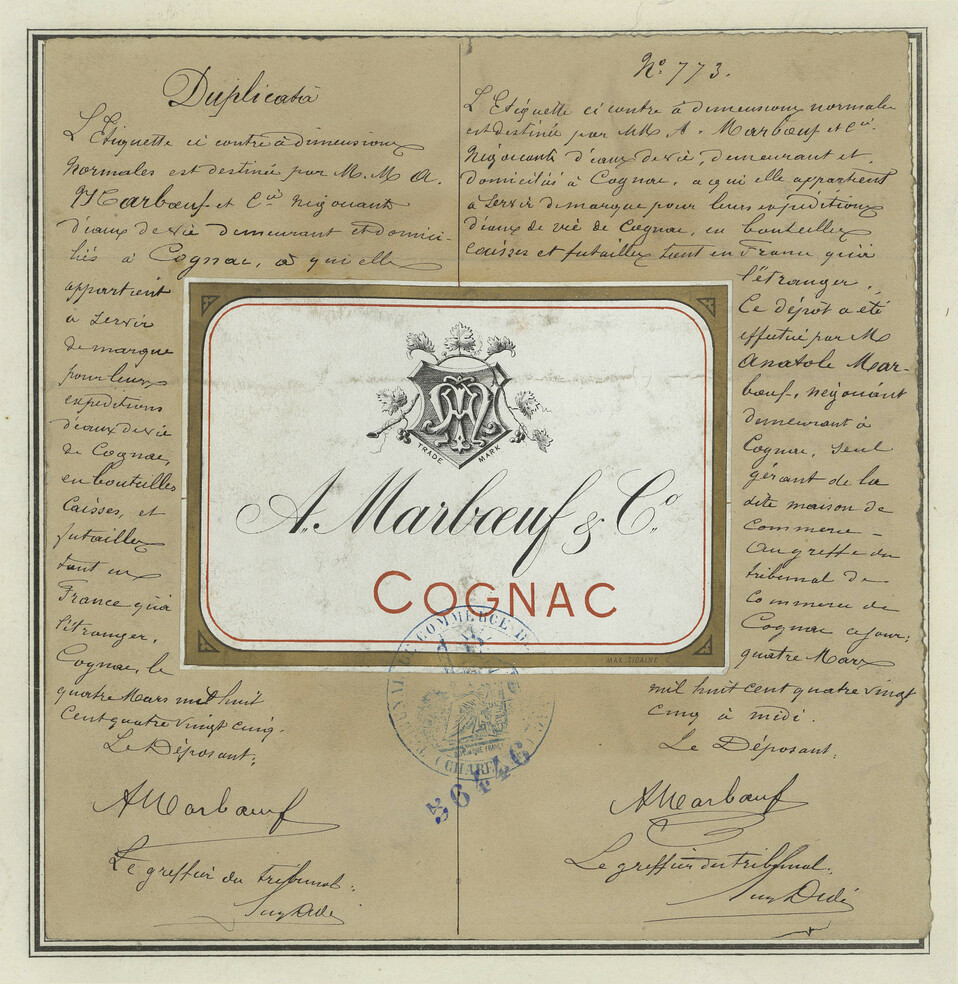 Duplicata
L'Etiquette ci contre à dimensions
normales est destinée par M. M A.
Marbœuf et Cie Négociants
d'eaux de vie demeurant et domici-
liés à Cognac, à qui elle
appartient
à servir
de marque
pour leurs
expéditions
d'eaux de vie
de Cognac,
en bouteilles
caisses, et
futailles
tant en
France qu'à
l'étranger.
Cognac, le
quatre Mars mil huit
cent quatre vingt cinq.
Le Déposant,
AMarbœuf
Le greffier du tribunal:
No. 773.
L'Etiquette ci contre à dimensions normales
est destinée par MM A. Marbœuf et Cie.
Négociants d'eaux de vie, demeurant et
domiciliés à Cognac, a qui elle appartient
à servir de marque pour leurs expéditions
d'eaux de vie de Cognac, en bouteilles
caisses et futailles tant en France qu'à
l'étranger.
Ce dépôt a été
effectué par M
Anatole Mar-
bœuf, négociant
demeurant à
Cognac, seul
gérant de la
dite maison de
Commerce -
Au greffe du
tribunal de
Commerce de
Cognac ce jour:
quatre Mars
mil huit cent quatre vingt
cinq à midi.
Le Déposant,
AMarbœuf
Le greffier du tribunal:
TRADE MARK
A. Marbœuf & Co.
COGNAC
COMMERCE
(CHARE
56446